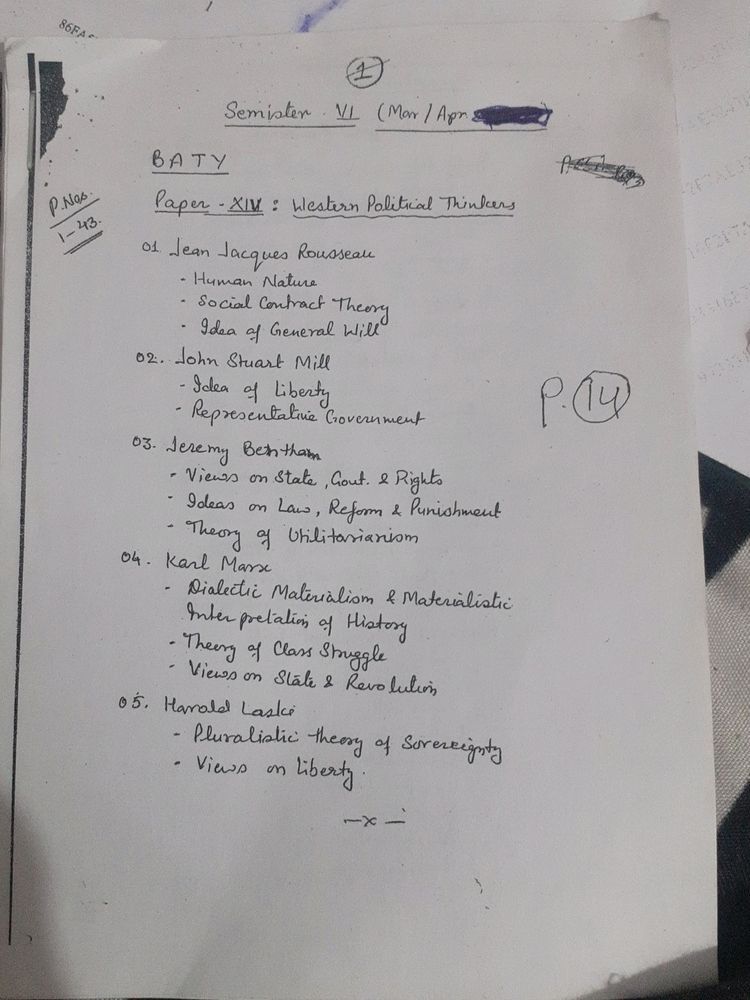 86FA
1
Semister - VI (Mar / Apr
BATY
P. Nos.
1-43.
Paper - XIV : Western Political Thinkers
01. Jean Jacques Rousseau
- Human Nature
- Social Contract Theory
- Idea of General Will
02. John Stuart Mill
- Idea of Liberty
- Representative Government
P. 14
03. Jeremy Bentham
- Views on State, Govt. & Rights
- Ideas on Law, Reform & Punishment
- Theory of Utilitarianism
04. Karl Marx
- Dialectic Materialism & Materialistic
Interpretation of History
- Theory of Class Struggle
- Views on State & Revolution
05. Harold Laski
- Pluralistic theory of Sovereignty
- Views on Liberty.
—x—